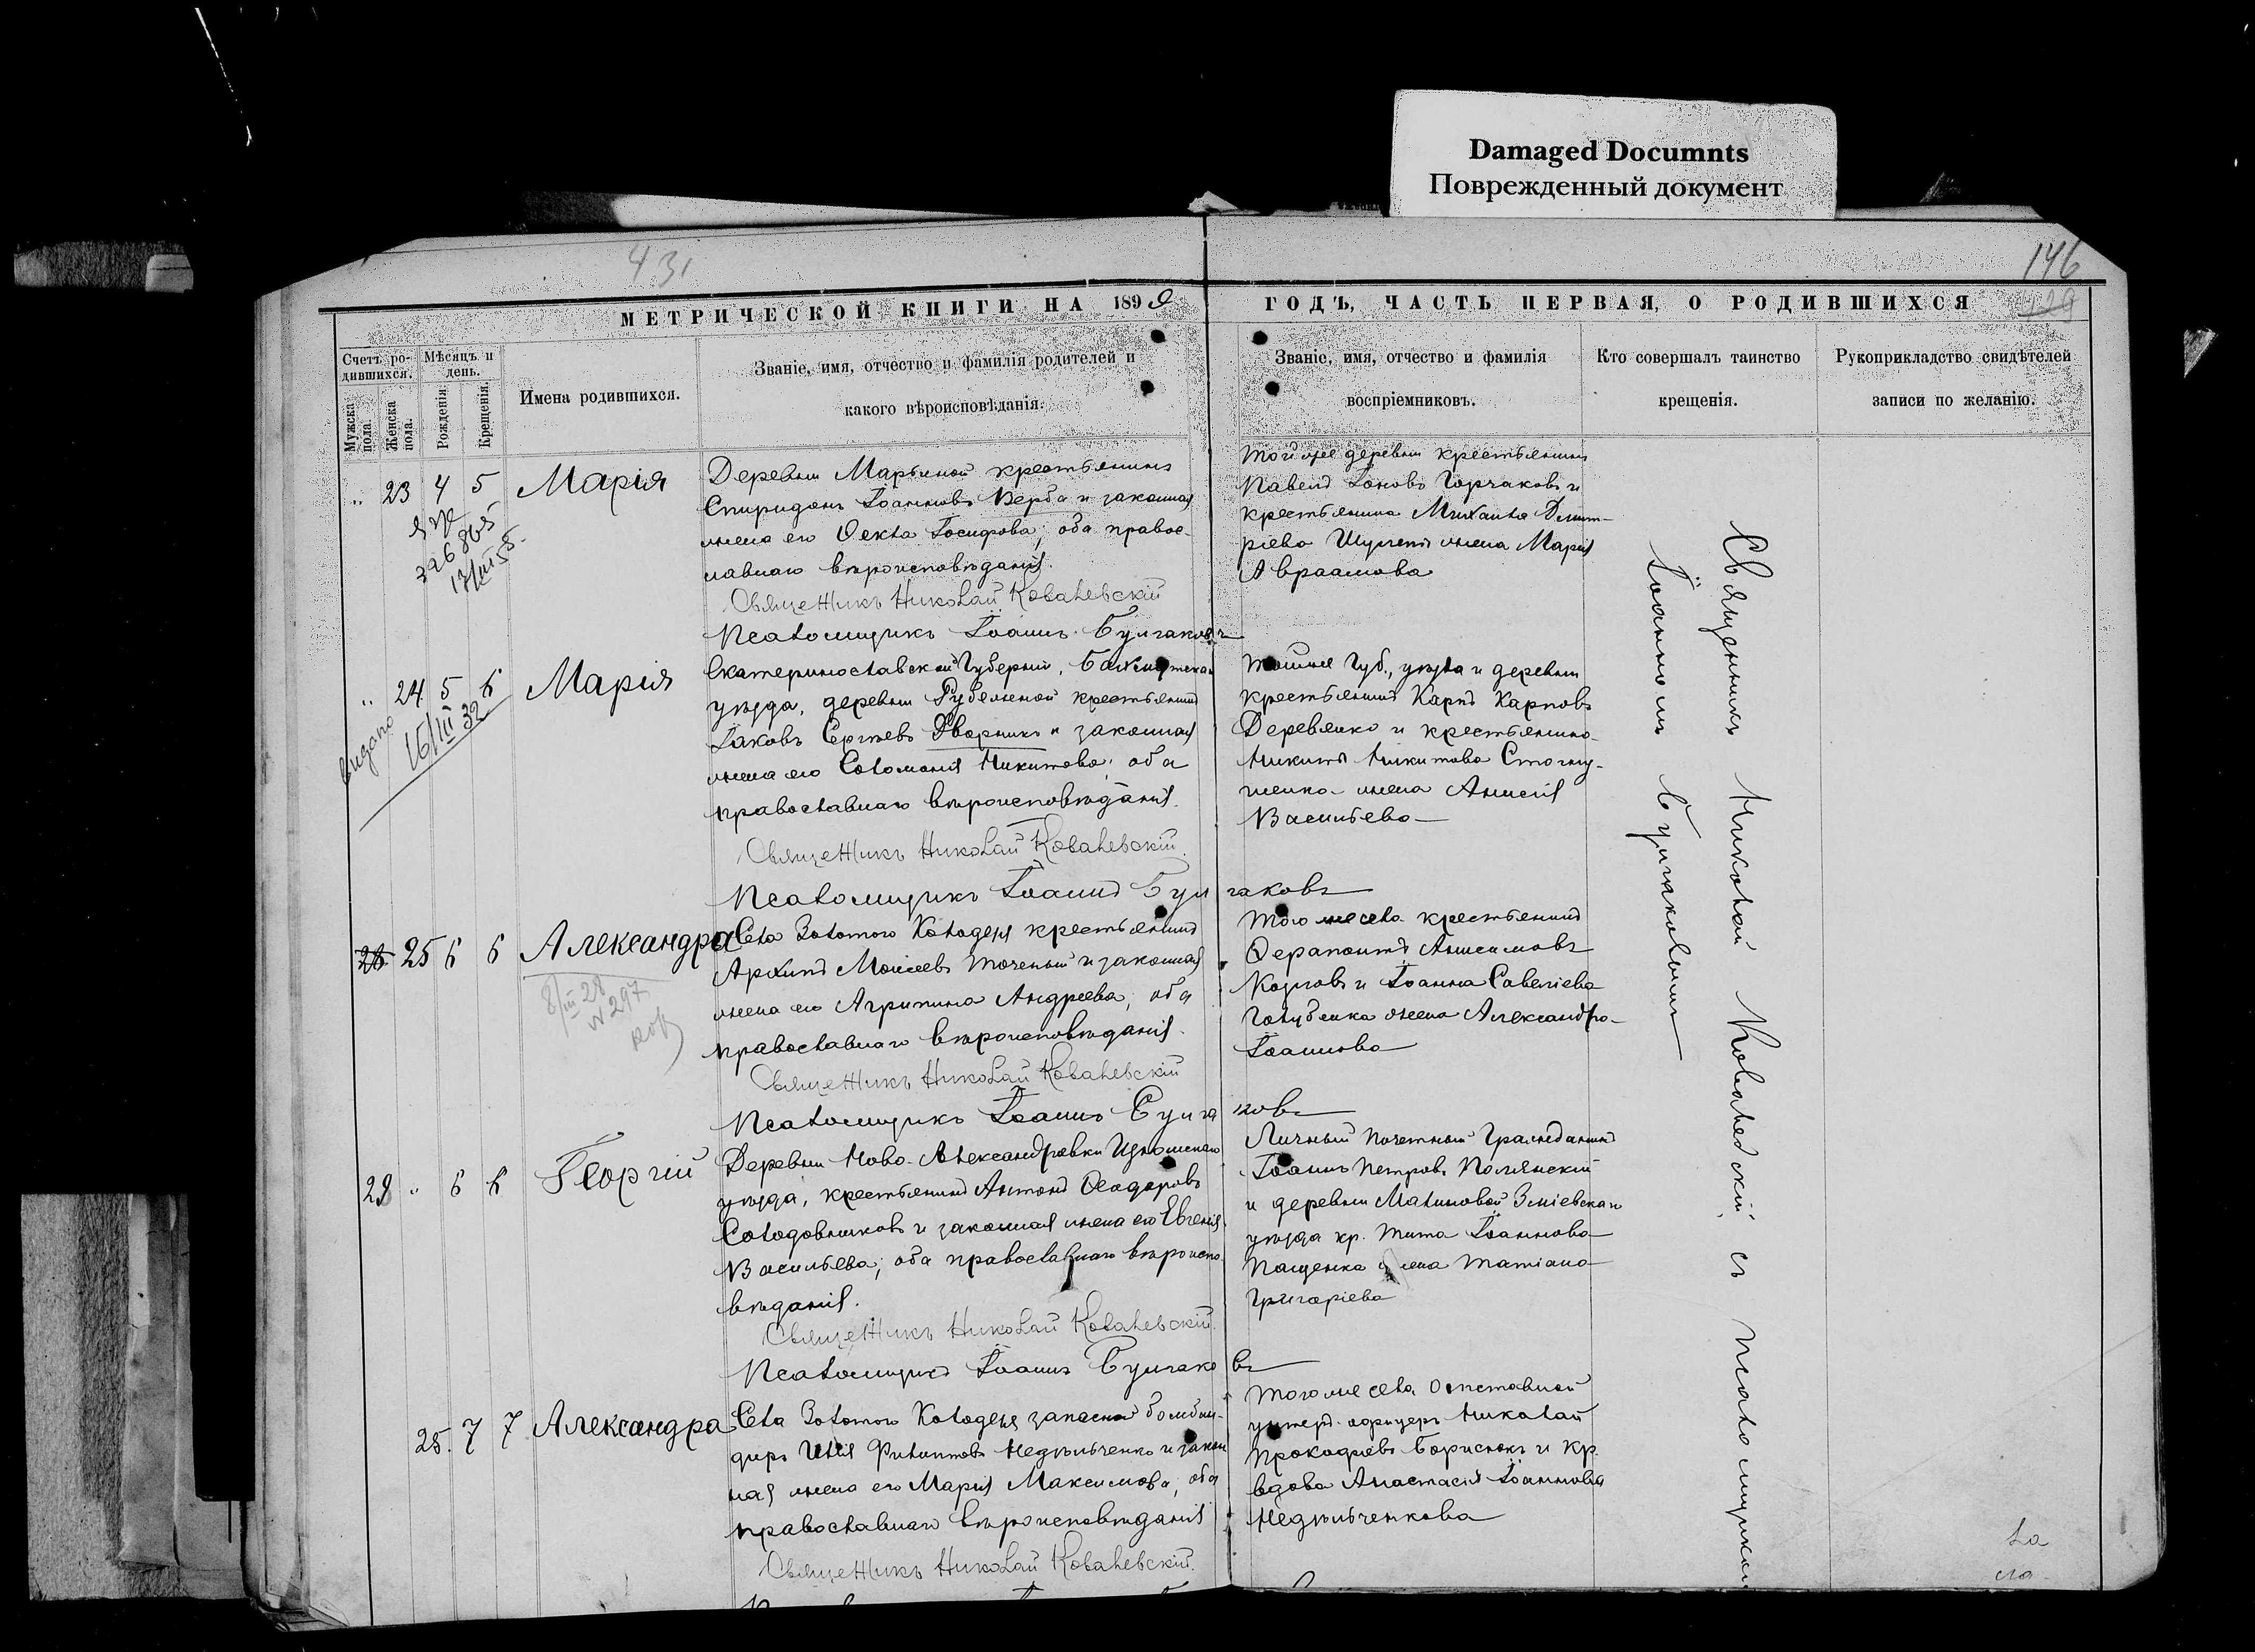 Damaged Documnts
Поврежденный документ
431
146
129
МЕТРИЧЕСКОЙ КНИГИ НА 1899
ГОДЪ, ЧАСТЬ ПЕРВАЯ, О РОДИВШИХСЯ
Счетъ ро-
дившихся.
Мужска
пола.
Женска
пола.
Мѣсяцъ и
день.
Рожденія.
Крещенія.
Имена родившихся.
Званіе, имя, отчество и фамилія родителей и
какого вѣроисповѣданія.
Званіе, имя, отчество и фамилія
воспріемниковъ.
Кто совершалъ таинство
крещенія.
Рукоприкладство свидѣтелей
записи по желанію.
„ 23 4 5 Марія
326865
Деревни Марьиной крестьянинъ
Спиридонъ Іоанновъ Верба и законная
жена его Ѳекла Іосифова; оба правос-
лавнаго вѣроисповѣданія.
Священникъ Николай Ковалевскій
Псаломщикъ Іоаннъ Булгаковъ
Той же деревни крестьянинъ
Павелъ Іоновъ Горчаковъ и
крестьянина Михаила Димит-
ріева жена Марія
Авраамова
„ 24 5 6 Марія
видано
16/III 32
Екатеринославской Губерніи, Бахмутскаго
уѣзда, деревни Рубежной крестьянинъ
Іаковъ Сергѣевъ Дворникъ и законная
жена его Соломонія Никитова; оба
православнаго вѣроисповѣданія.
Священникъ Николай Ковалевскій.
Псаломщикъ Іоаннъ Булгаковъ
Той же Губ., уѣзда и деревни
крестьянинъ Карпъ Карповъ
Деревянко и крестьянина
Никиты Никитова
жена Анисія
Васильева
25 6 6 Александра
8/III 28
N 297
Села Золотого Колодезя крестьянинъ
Архипъ Моисеевъ Точеный и законная
жена его Агрипина Андреева; оба
православнаго вѣроисповѣданія.
Священникъ Николай Ковалевскій
Псаломщикъ Іоаннъ Булгаковъ
Того же села крестьянинъ
Ѳерапонтъ Анисимовъ
Козловъ и Іоанна Савеліева
Голубенка жена Александра
Іоаннова
29 „ 6 6 Георгій
Деревни Ново-Александровки Изюмскаго
уѣзда, крестьянинъ Антонъ Ѳеодоровъ
Солодовниковъ и законная жена его Евгенія
Васильева; оба православнаго вѣроиспо-
вѣданія.
Священникъ Николай Ковалевскій.
Псаломщикъ Іоаннъ Булгаковъ
Личный Почетный Гражданинъ
Іоаннъ Петровъ Полянскій
и деревни Малиновой Зміевскаго
уѣзда кр. Тита Іоаннова
Пащенка жена Татіана
Григоріева
25. 7 7 Александра
Села Золотого Колодезя запасной бомбан-
диръ Илія Филипповъ Недѣльченко и закон
ная жена его Марія Максимова; оба
православнаго вѣроисповѣданія
Священникъ Николай Ковалевскій.
Того же села Отставной
унтеръ-офицеръ Николай
Прокофіевъ Борисюкъ и кр.
вдова Анастасія Іоаннова
Недѣльченкова
Священникъ Николай Ковалевскій, съ псаломщикомъ
Іоанномъ Булгаковымъ